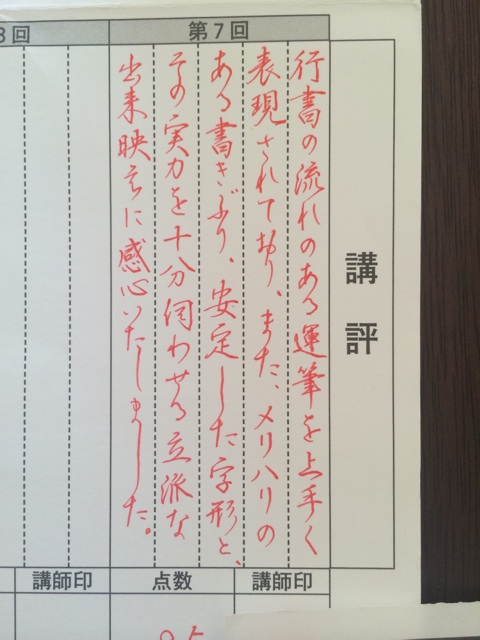 講評
第7回
行書の流れのある運筆を上手く
表現されており、また、メリハリの
ある書きぶり、安定した字形と、
その実力を十分伺わせる立派な
出来映えに感心いたしました。
回
講師印
点数
講師印